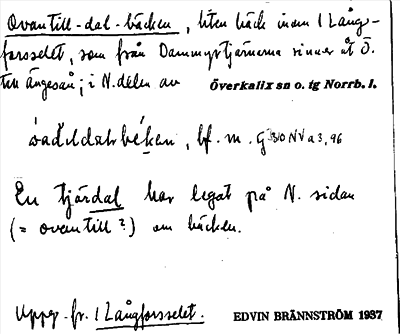 Ovantill-dal-bäcken, liten bäck inom 1 Lång-
forsselet, som från Dammyrtjärnarna rinner åt Ö.
till ängesån; i N.delen av Överkalix sn o. tg Norrb. l.
bf. m. G 3810 NV a 3, 96
En tjärdal har legat på N. sidan
(= ovantill ?) om bäcken.
Uppg. fr. 1 Långforsselet. EDVIN BRÄNNSTRÖM 1937